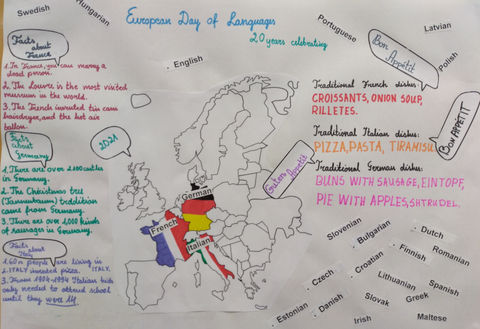 Swedish
Hungarian
European Day of Languages
20 years celebrating
Portuguese
Latvian
Polish
English
Facts
about
France
1. In France, you can marry a
dead person.
2. The Louvre is the most visited
museum in the world.
3. The French invented tin can
hairdryer, and the hot air
ballon.
Facts
about
Germany
1. There are over 2.100 castles
in Germany.
2. The Christmas tree
(Tannenbaum) tradition
came from Germany.
3. There are over 1,000 kinds
of sausages in Germany.
Facts
about
Italy
1. 60 m people are living in
ITALY.
2. ITALY invented pizza.
3. From 1904-1994 Italian kids
only needed to attend school
until they were 14
2021
Bon
Appétit
Traditional French dishes:
CROISSANTS, ONION SOUP,
RILLETES.
Traditional Italian dishes:
PIZZA, PASTA, TIRAMISU
BON APPETIT
Traditional German dishes:
BUNS WITH SAUSAGE, EINTOPF,
PIE WITH APPLES, SHTRUDEL.
Guten Appetit
German
French
Italian
Slovenian
Bulgarian
Dutch
Romanian
Finnish
Croatian
Czech
Lithuanian
Spanish
Greek
Slovak
Danish
Estonian
Irish
Maltese